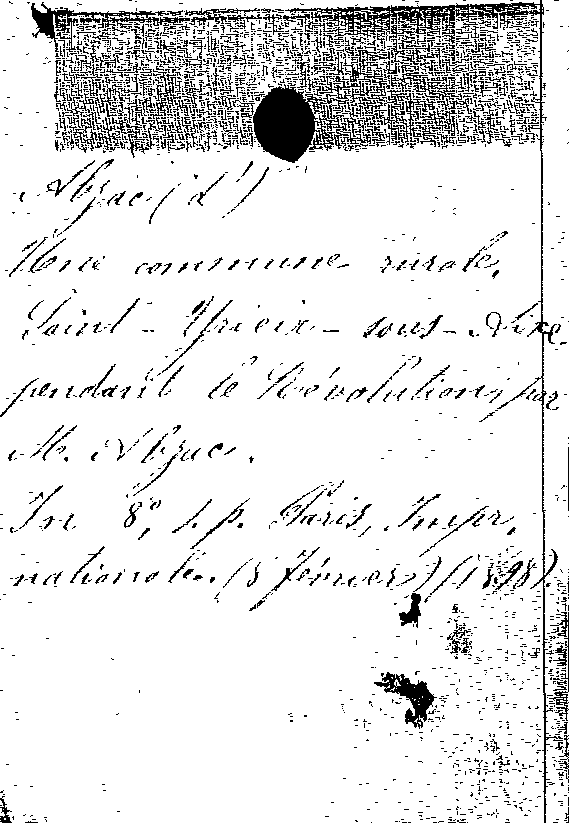 Abzac (d')
Une commune rurale.
Saint-Yrieix-sous-Aixe
pendant la Révolution, par
M. Abzac.
In 8°, s. p. Paris, Impr.
nationale. (8 février) (1898).